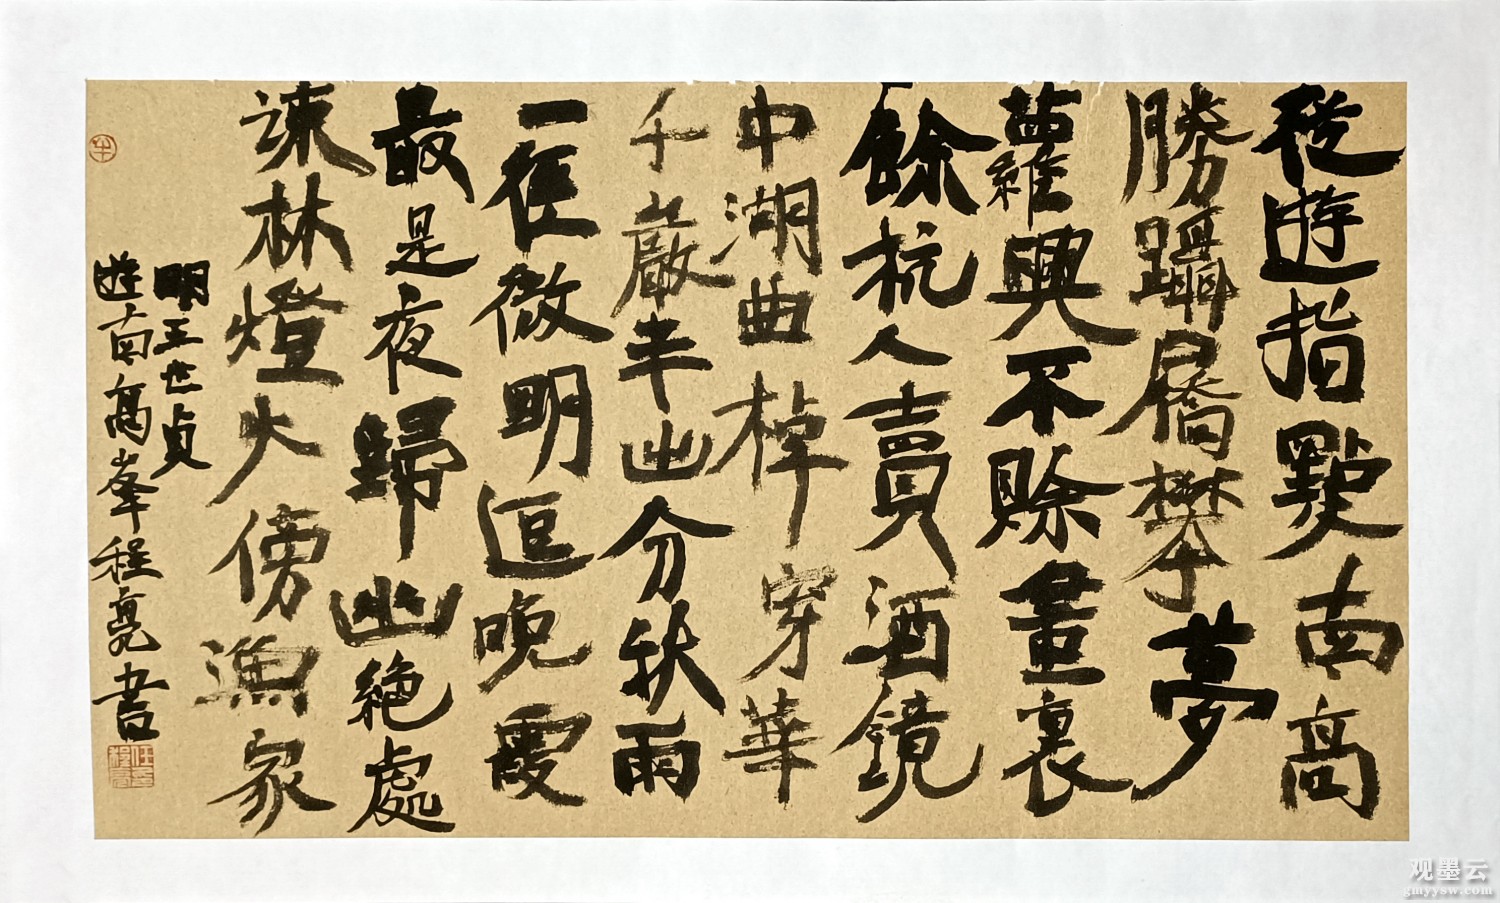 從遊指點南高
勝躡屩攀夢
蘿興不賒畫裏
餘杭人賣酒鏡
中湖曲棹穿華
千巖半出分秋雨
一徑微明逗晚霞
最是夜歸幽絕處
疎林燈火傍漁家
明王世貞
遊南高峯程亮書
观墨云
gmyysw.com